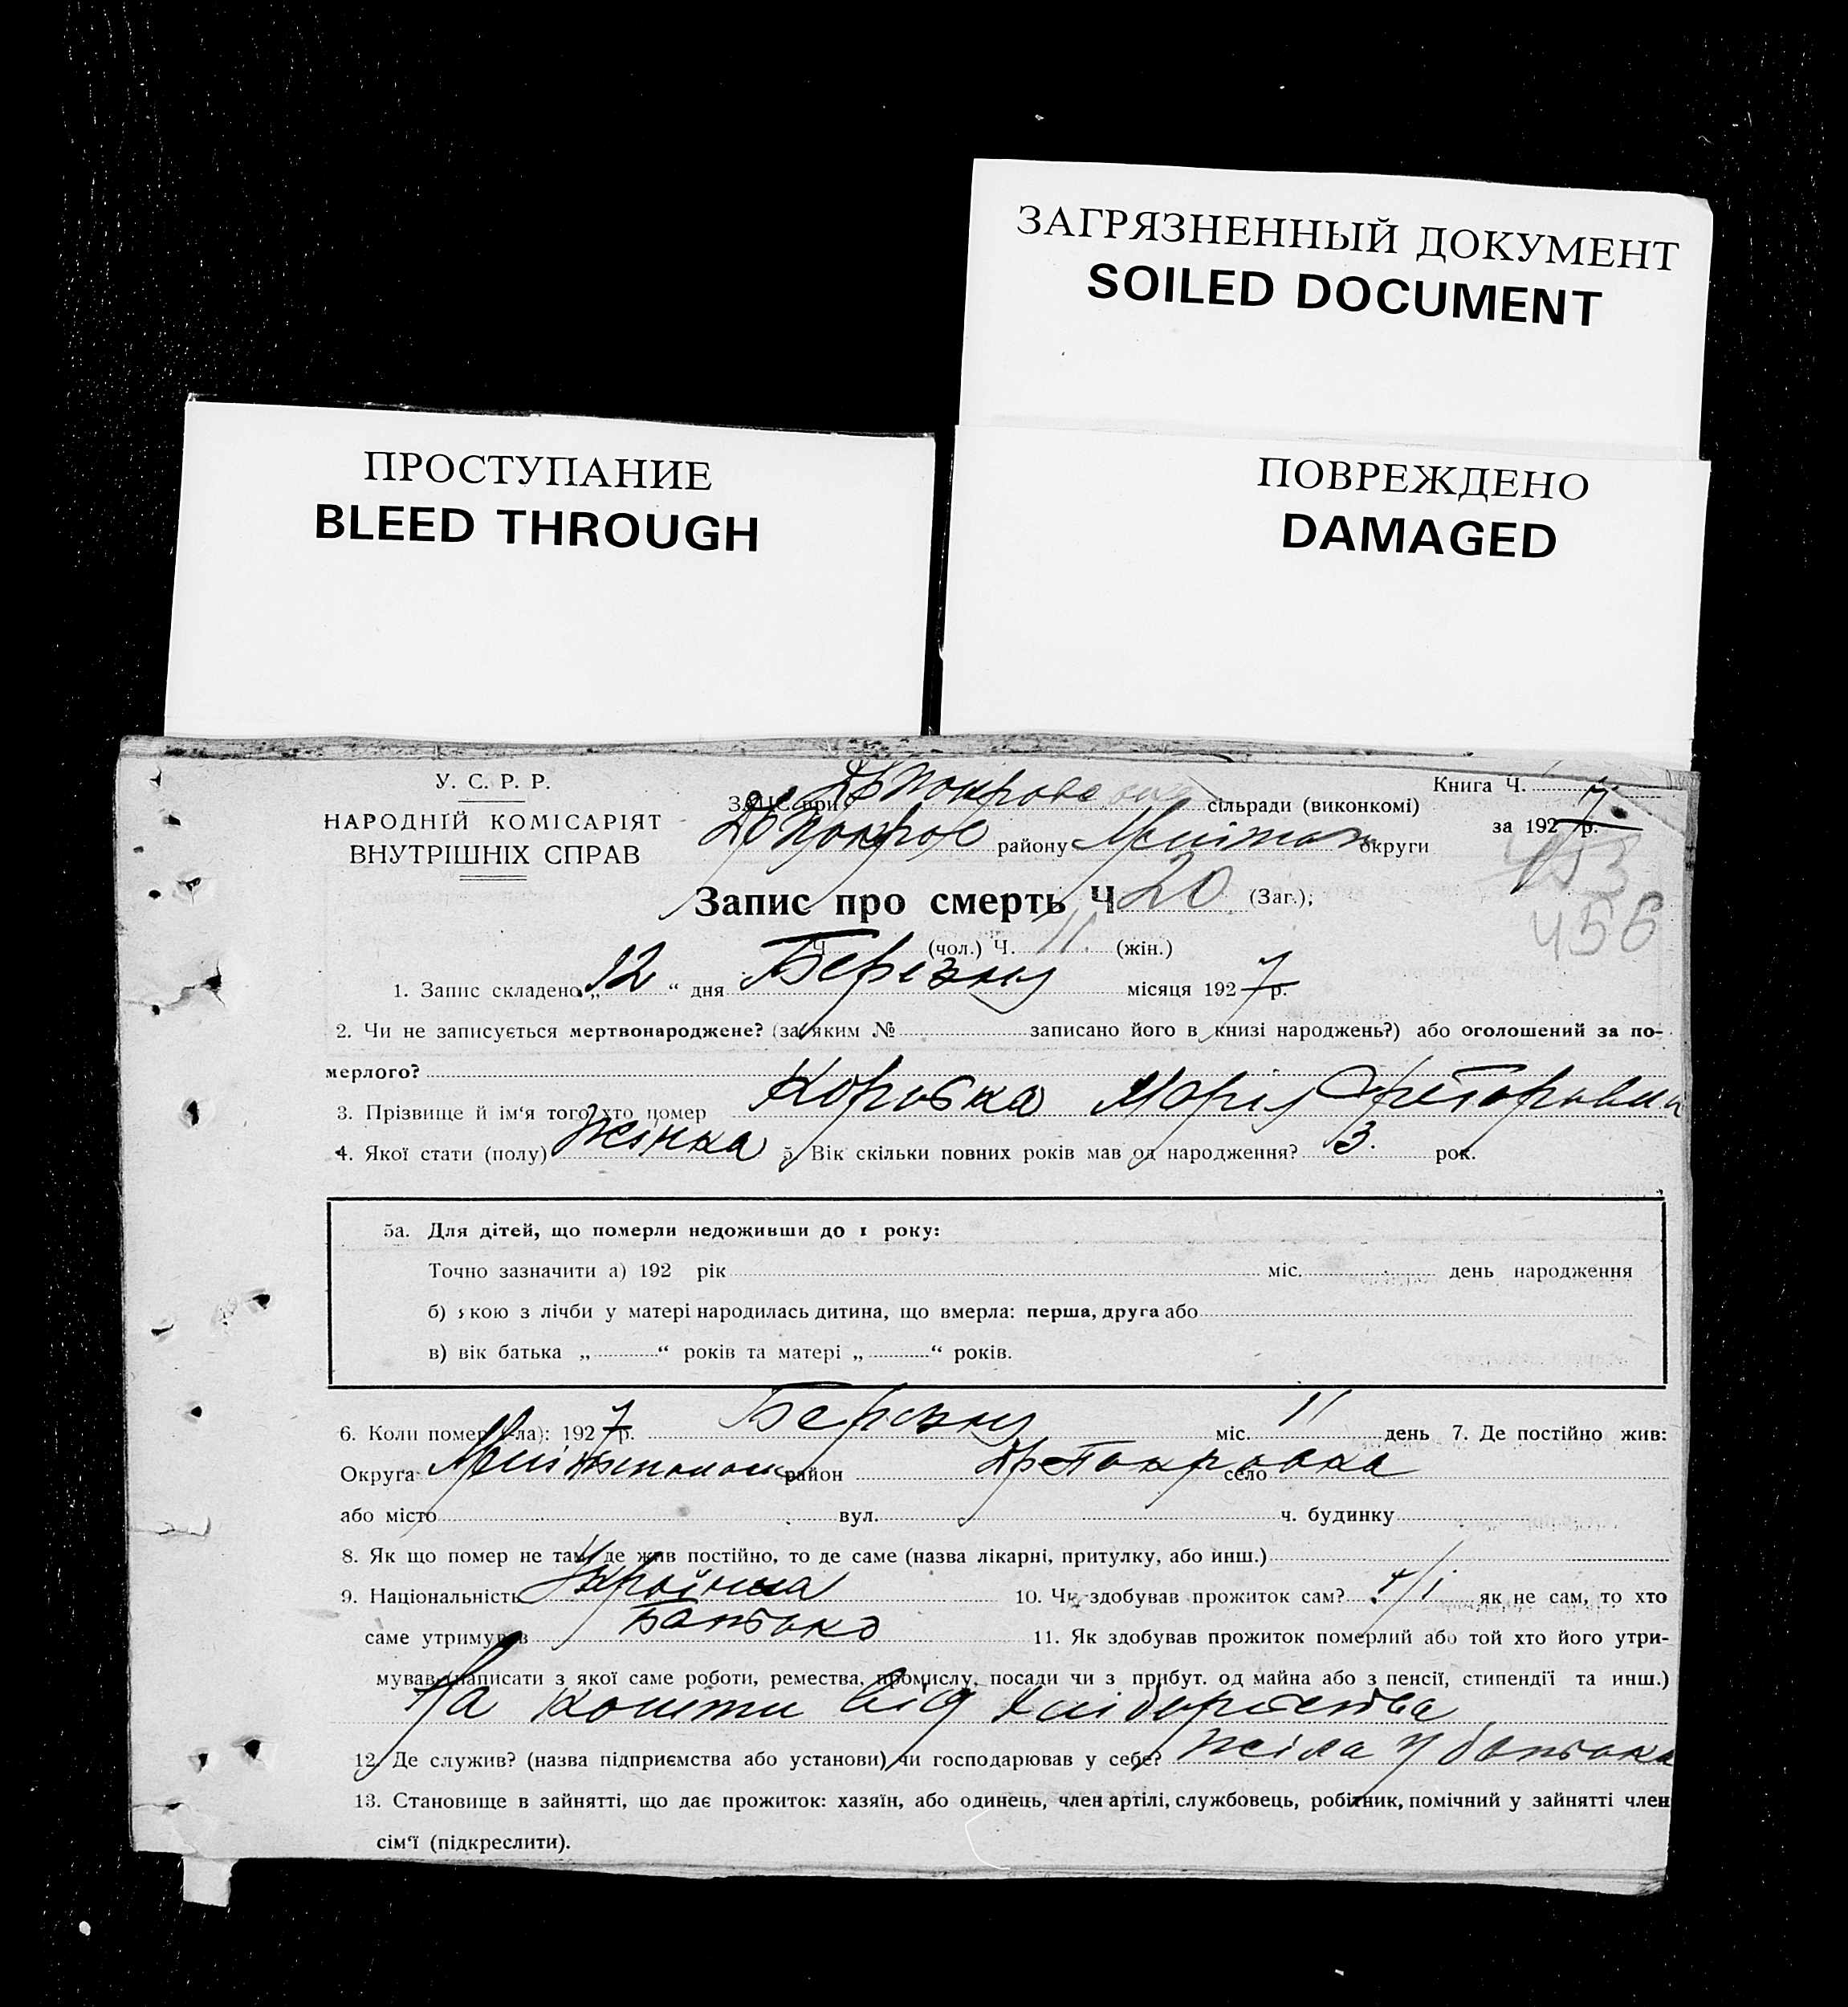 ЗАГРЯЗНЕННЫЙ ДОКУМЕНТ
SOILED DOCUMENT
ПРОСТУПАНИЕ
BLEED THROUGH
ПОВРЕЖДЕНО
DAMAGED
У. С. Р. Р.
НАРОДНІЙ КОМІСАРІЯТ
ВНУТРІШНІХ СПРАВ
ЗАПС при сільради (виконкомі)
району округи
Книга Ч.
за 1927 р.
453
456
Запис про смерть Ч 20 (Заг.);
Ч. (чол.) Ч. 11. (жін.)
1. Запис складено „12“ дня Березня місяця 1927 р.
2. Чи не записується мертвонароджене? (за яким № записано його в книзі народжень?) або оголошений за по-
мерлого?
3. Прізвище й ім‘я того хто помер Коровка Марія
4. Якої стати (полу) Жінка 5. Вік скільки повних років мав од народження? 3. рок.
5а. Для дітей, що померли недоживши до 1 року:
Точно зазначити а) 192 рік міс. день народження
б) якою з лічби у матері народилась дитина, що вмерла: перша, друга або
в) вік батька „ “ років та матері „ “ років.
6. Коли помер (-ла): 1927 р. Березня міс. 11 день 7. Де постійно жив:
Округа район село
або місто вул. ч. будинку
8. Як що помер не там, де жив постійно, то де саме (назва лікарні, притулку, або инш.)
9. Національність Українка 10. Чи здобував прожиток сам? як не сам, то хто
саме утримував Батько 11. Як здобував прожиток померлий або той хто його утри-
мував (написати з якої саме роботи, ремества, промислу, посади чи з прибут. од майна або з пенсії, стипендії та инш.)
На кошти від
12. Де служив? (назва підприємства або установи) чи господарював у себе? жила у батька
13. Становище в зайнятті, що дає прожиток: хазяїн, або одинець, член артілі, службовець, робітник, помічний у зайнятті член
сім‘ї (підкреслити).